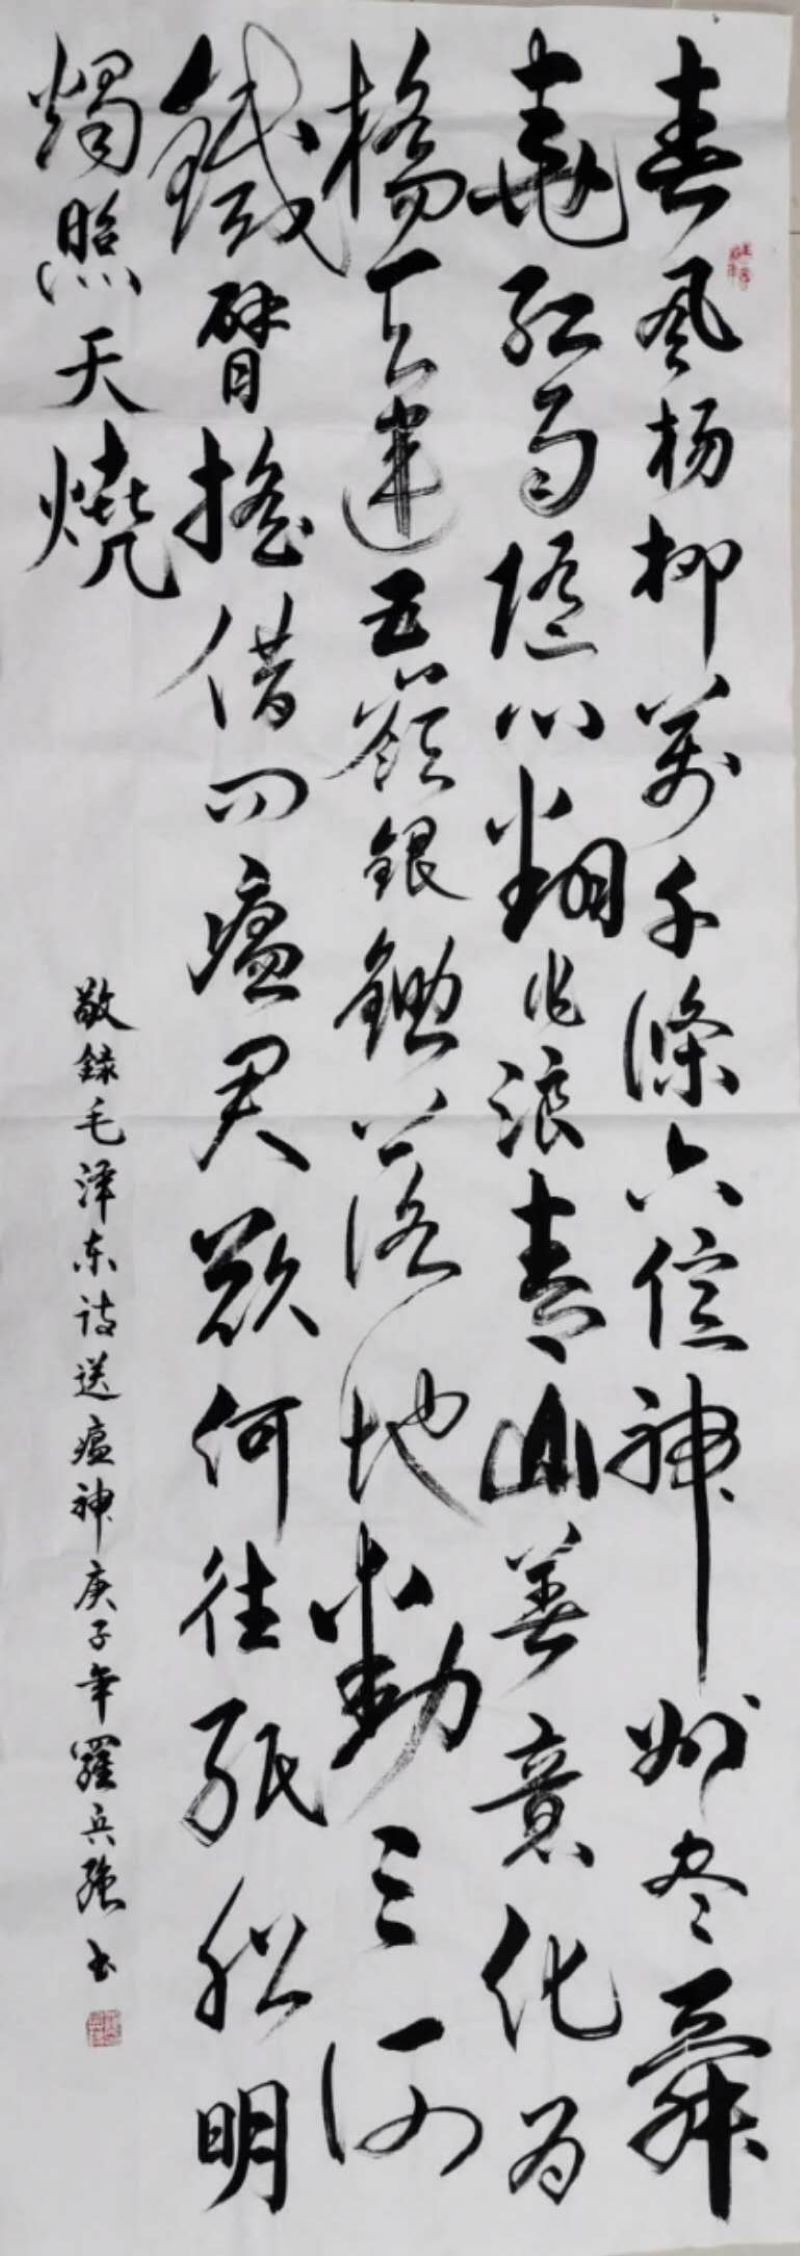 春风杨柳萬千條六億神州尽舜
堯红雨随心翻作浪青山着意化为
橋天连五嶺銀鋤落地動三河
鐵臂摇借问瘟君欲何往纸船明
燭照天燒
敬録毛泽东诗送瘟神庚子年羅兵强书